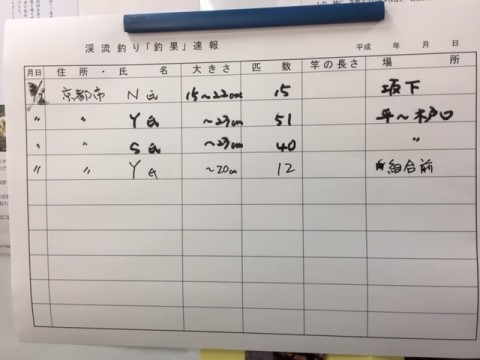 渓流釣り「釣果」速報
平成 年 月 日
月日 住所・氏名 大きさ 匹数 竿の長さ 場所
京都市 N氏 15～22cm 15 坂下
〃 〃 Y氏 ～23cm 51 平～木戸口
〃 〃 S氏 ～23cm 40 〃
〃 〃 Y氏 ～20cm 12 組合前